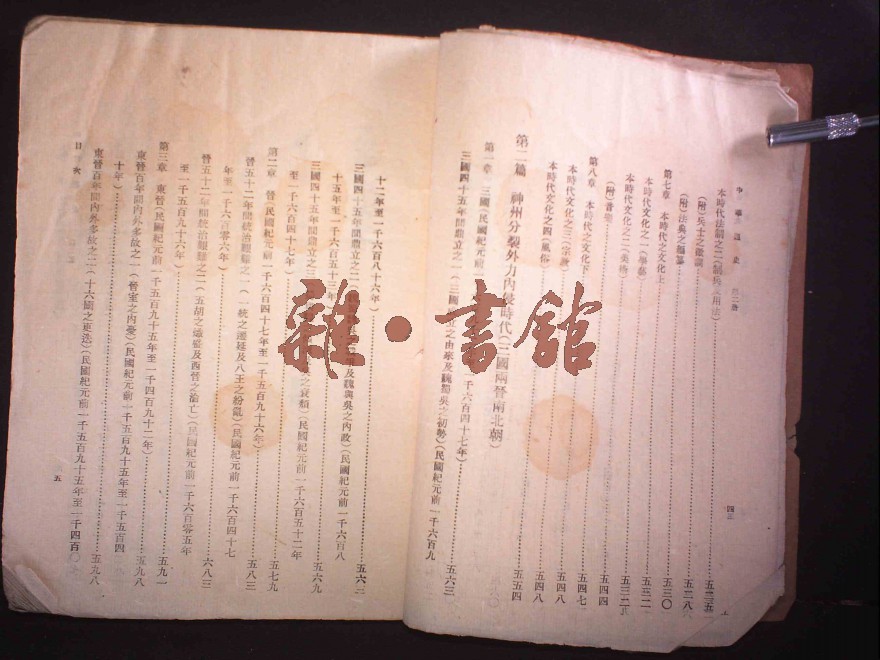 中華通史 第二冊
本時代法制之二(制兵及用法)……五二五
(附)兵士之徵調……五二八
(附)法典之編纂……五三〇
第七章 本時代之文化上
本時代文化之一(學藝)
本時代文化之二(美術)
(附)音樂……五四四
第八章 本時代之文化下……五四七
本時代文化之三(宗教)……五四八
本時代文化之四(風俗)……五四八
……五五四
第二篇 神州分裂外力內侵時代(三國兩晉南北朝)
第一章 三國(民國紀元前一千六百四十七年)
三國四十五年間鼎立之一(三國立之由來及魏蜀吳之初勢)(民國紀元前一千六百九
十二年至一千六百八十六年)……五六三
三國四十五年間鼎立之二(及魏與吳之內政)(民國紀元前一千六百八
十五年至一千六百五十三年)
三國四十五年間鼎立之三(之衰頹)(民國紀元前一千六百五十二年
至一千六百四十七年)……五七九
第二章 晉(民國紀元前一千六百四十七年至一千五百九十六年)……五八三
晉五十二年間統治艱難之一(一統之遷延及八王之紛亂)(民國紀元前一千六百四十七
年至一千六百零六年)
晉五十二年間統治艱難之二(五胡之熾盛及西晉之淪亡)(民國紀元前一千六百零五年
至一千五百九十六年)
第三章 東晉(民國紀元前一千五百九十五年至一千四百九十二年)……五九一
東晉百年間內外多故之一(晉室之內憂)(民國紀元前一千五百九十五年至一千五百四
十年)……五九八
東晉百年間內外多故之二(十六國之更迭)(民國紀元前一千五百九十五年至一千四百
目次
五
雜·書館